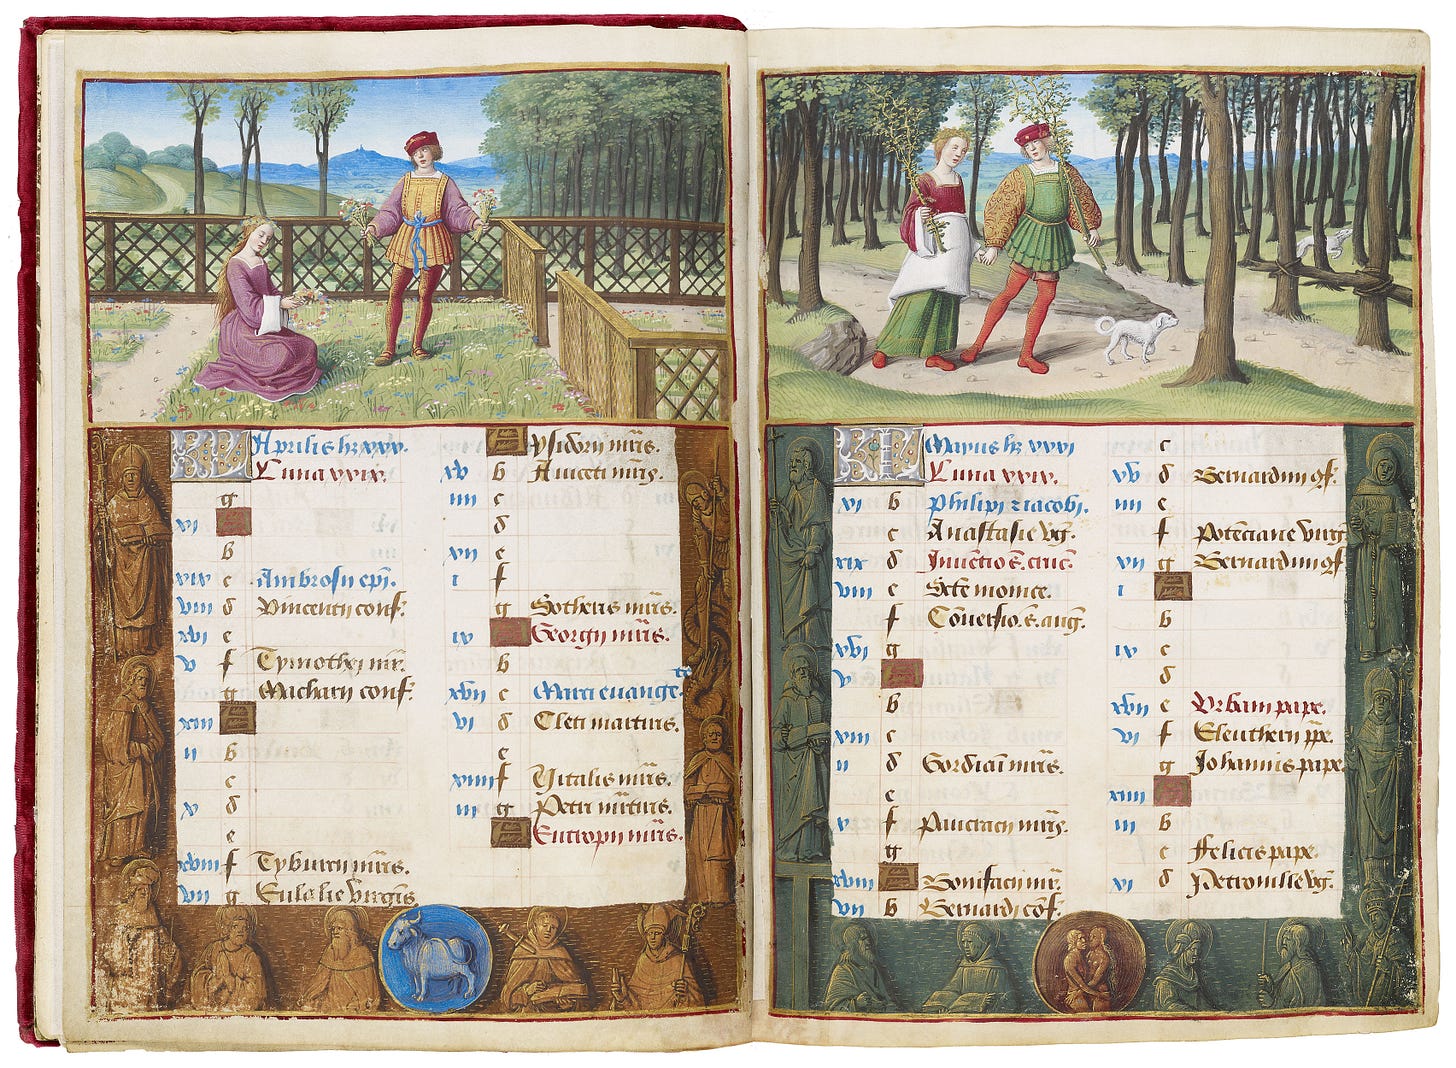 KL Aprilis hz xxx.
Luna xxix.
g
xi A
b
xix c Ambrosii epi.
viii d Vincentii conf.
xvi e
v f Tymothei mr.
g Macharii conf.
xiii A
ii b
c
x d
e
xviii f Tyburcii mris.
vii g Eulalie virgis
A ysidorii mris.
xv b Aniceti mrs.
iiii c
d
xii e
i f
g Sotheris mris.
ix A Georgii mris.
b
xvii c Marci euangelte
vi d Cleti martiris.
e
xiiii f Vitalis mris.
iii g Petri mrtiris.
A Eutropii mris.
KL Mayus hz xxxi
Luna xxix.
xi b Philipi z iacobi.
c Anastasie vg.
xix d Inuentio s. cruc.
viii e Scte monice.
f Conuersio. s. aug.
xvi g
v A
b
xiii c
ii d Gordiani mris.
e
x f Pancracii mrs.
g
xviii A Bonifacii mr.
vii b Bernardi cof.
c
xv d Bernardini cf.
iiii e
f Potenciane virg.
xii g Bernardini cf
i A
b
ix c
d
xvii e Urbani pape.
vi f Eleutherii ppe.
g Johannis pape
xiiii A
iii b
c Felicis pape.
xi d Petronille vg.